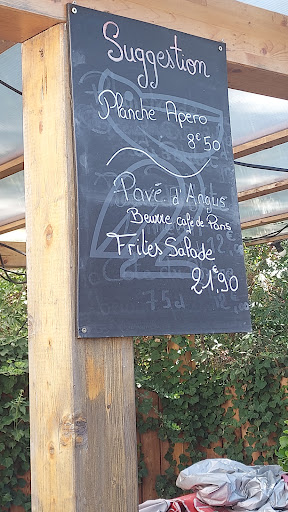 Suggestion
Planche Apero
8€50
Pavé d'Angus
Beurre café de Paris
Frites Salade
21€90